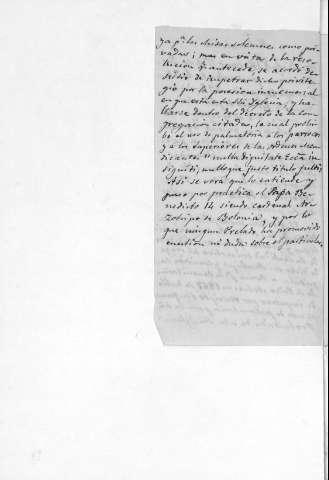 ya pª las misas solemnes como pri-
vadas; mas en vista de la reso-
lucion q. antecede, se acordó de-
sistir de impetrar dicho privile-
gio por la posesion inmemorial
en que está esta Sta Iglesia, y ha-
llarse dentro del decreto de la con-
gregacion citadas, la cual prohi-
be el uso de palmatoria á los parrocos
y á los superiores de las ordenes men-
dicantes "nulla dignitate Eccã in-
signiti, nulloque justo titulo fulti,
Asi se verá que lo entiende y
puso por practica el Papa Be-
nedicto 14 siendo cardenal Ar-
zobispo de Bolonia, y por lo
que ningun Prelado ha promovido
cuestion ni duda sobre el particular